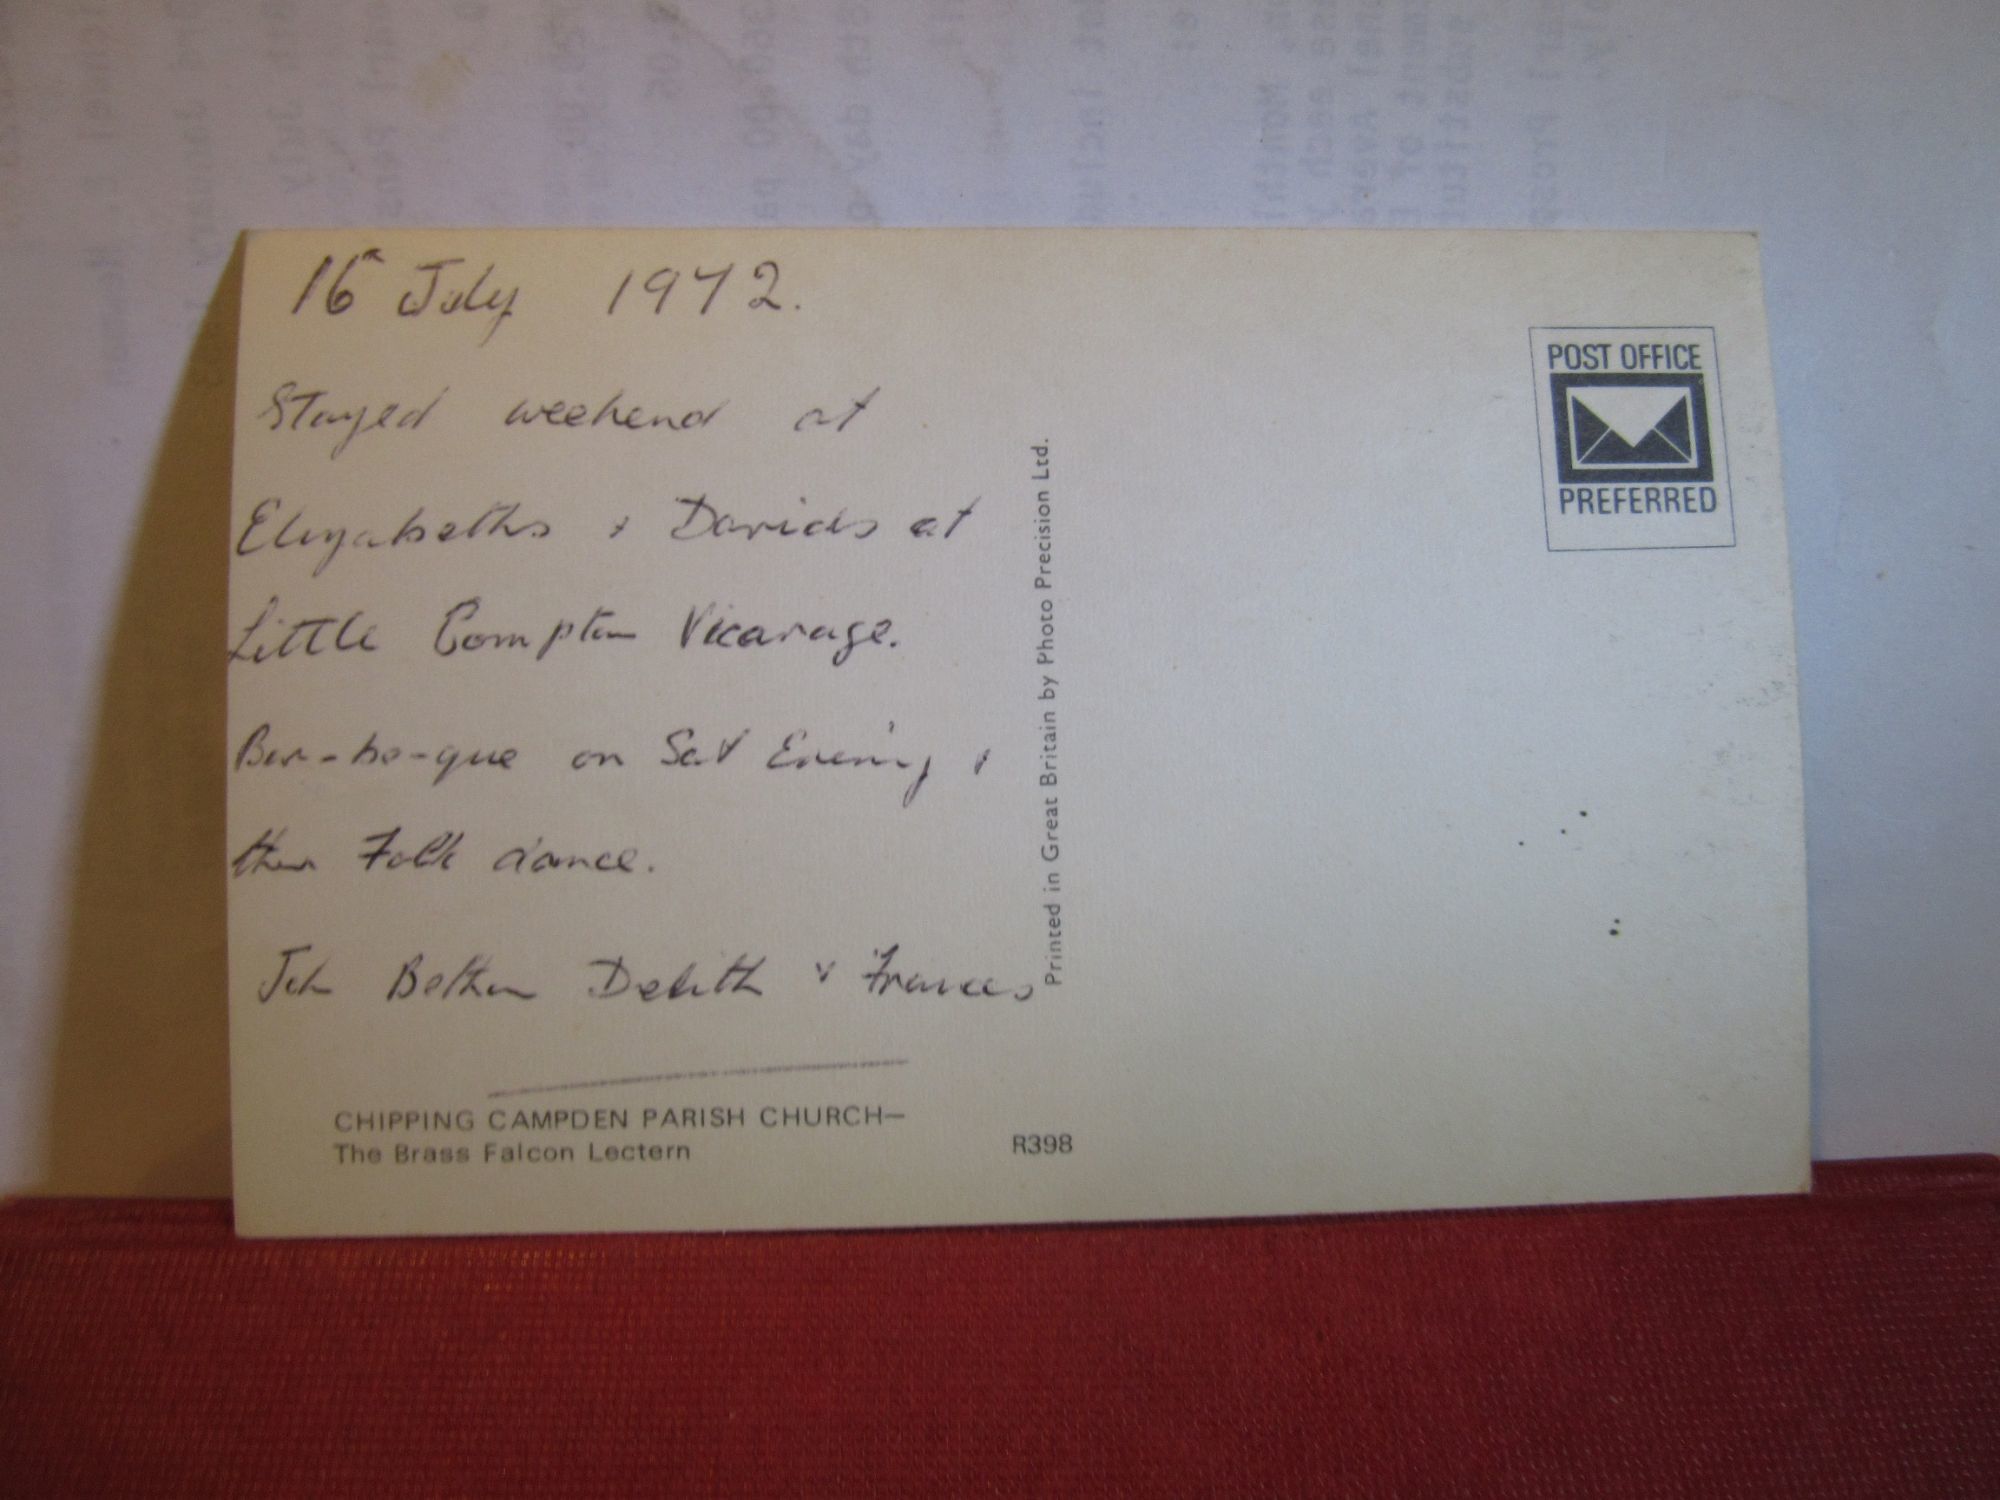 16th July 1972.
Stayed weekend at
Elizabeths & Davids at
Little Compton Vicarage.
Bar-be-que on Sat Evening &
then Folk dance.
& Frances
CHIPPING CAMPDEN PARISH CHURCH—
The Brass Falcon Lectern
R398
Printed in Great Britain by Photo Precision Ltd.
POST OFFICE
PREFERRED